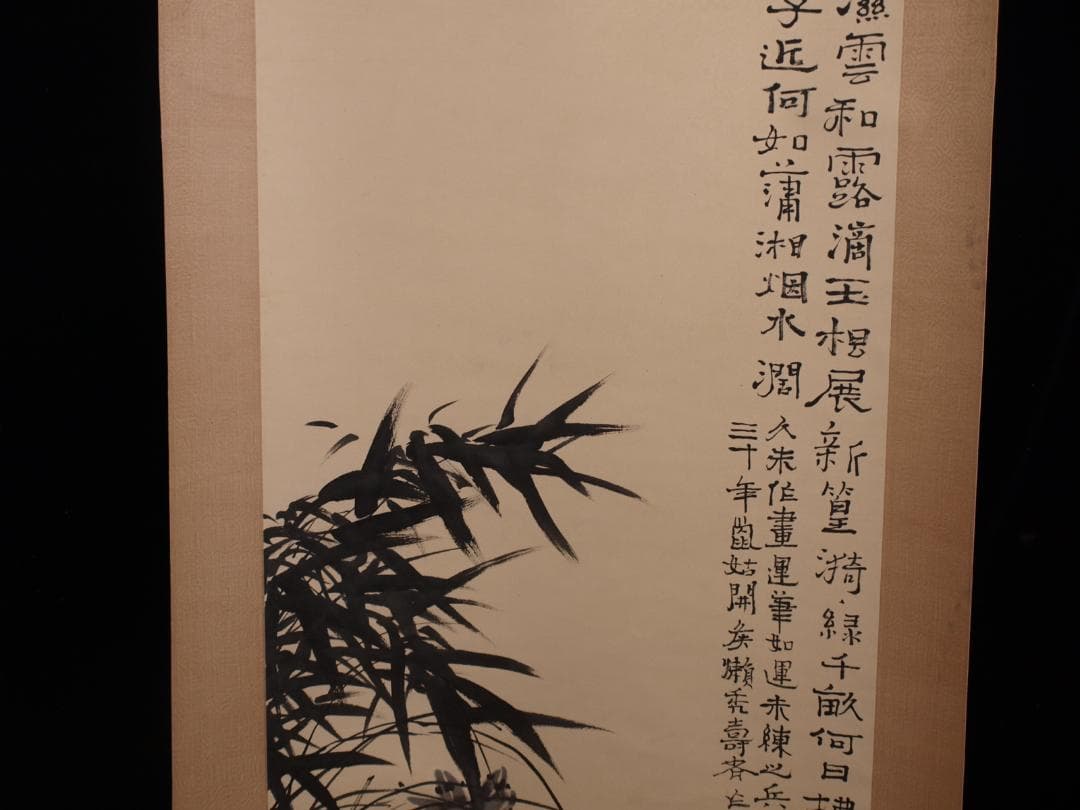 雲和露滴玉根展新篁漪綠千畝何日
子近何如蒲湘烟水濶
久未作畫運筆如運未練之兵
三十年鼠姑開矣懶禿壽者亡